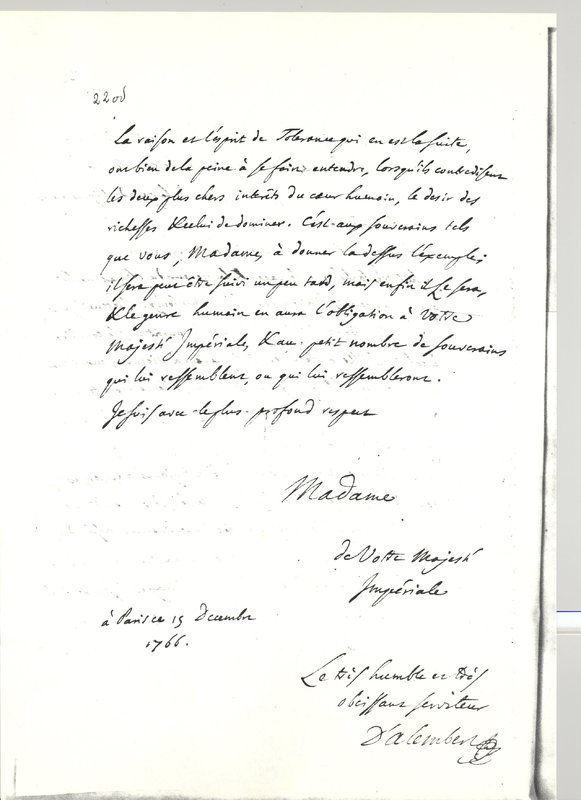 220d
la raison et l'esprit de Tolerance qui en est la suite,
ont bien de la peine à se faire entendre, lorsqu'ils contredisent
les deux plus chers interêts du cœur humain, le desir des
richesses & celui de dominer. C'est aux souverains tels
que vous, Madame, à donner la dessus l'exemple;
il sera peut être suivi un peu tard, mais enfin il le sera,
& le genre humain en aura l'obligation à Votre
Majesté Impériale, & au petit nombre de souverains
qui lui ressemblent, ou qui lui ressembleront.
Je suis avec le plus profond respect
Madame
de Votre Majesté
Impériale
à Paris ce 15 Decembre
1766.
Le très humble et très
obeissant serviteur
D'alembert